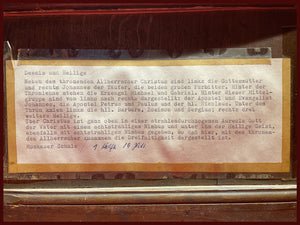 Deesis und Heilige
Neben dem thronenden Allherrscher Christus sind links die Gottesmutter
und rechts Johannes der Täufer, die beiden großen Fürbitter. Hinter der
Thronlehne stehen die Erzengel Michael und Gabriel. Hinter dieser Mittel-
gruppe sind von links nach rechts dargestellt: der Apostel und Evangelist
Johannes, die Apostel Petrus und Paulus und der hl. Nikolaus. Unter dem
Thron knien links die hll. Barbara, und rechts drei
weitere Heilige.
Über Christus ist ganz oben in einer strahlendurchzogenen Aureole Gott
der Vater mit einem achtstrahligen Nimbus und unter ihm der Heilige Geist,
ebenfalls mit achtstrahligem Nimbus gegeben, so daß hier, mit dem thronen-
den Allherrscher zusammen die Dreifaltigkeit dargestellt ist.
Moskauer Schule